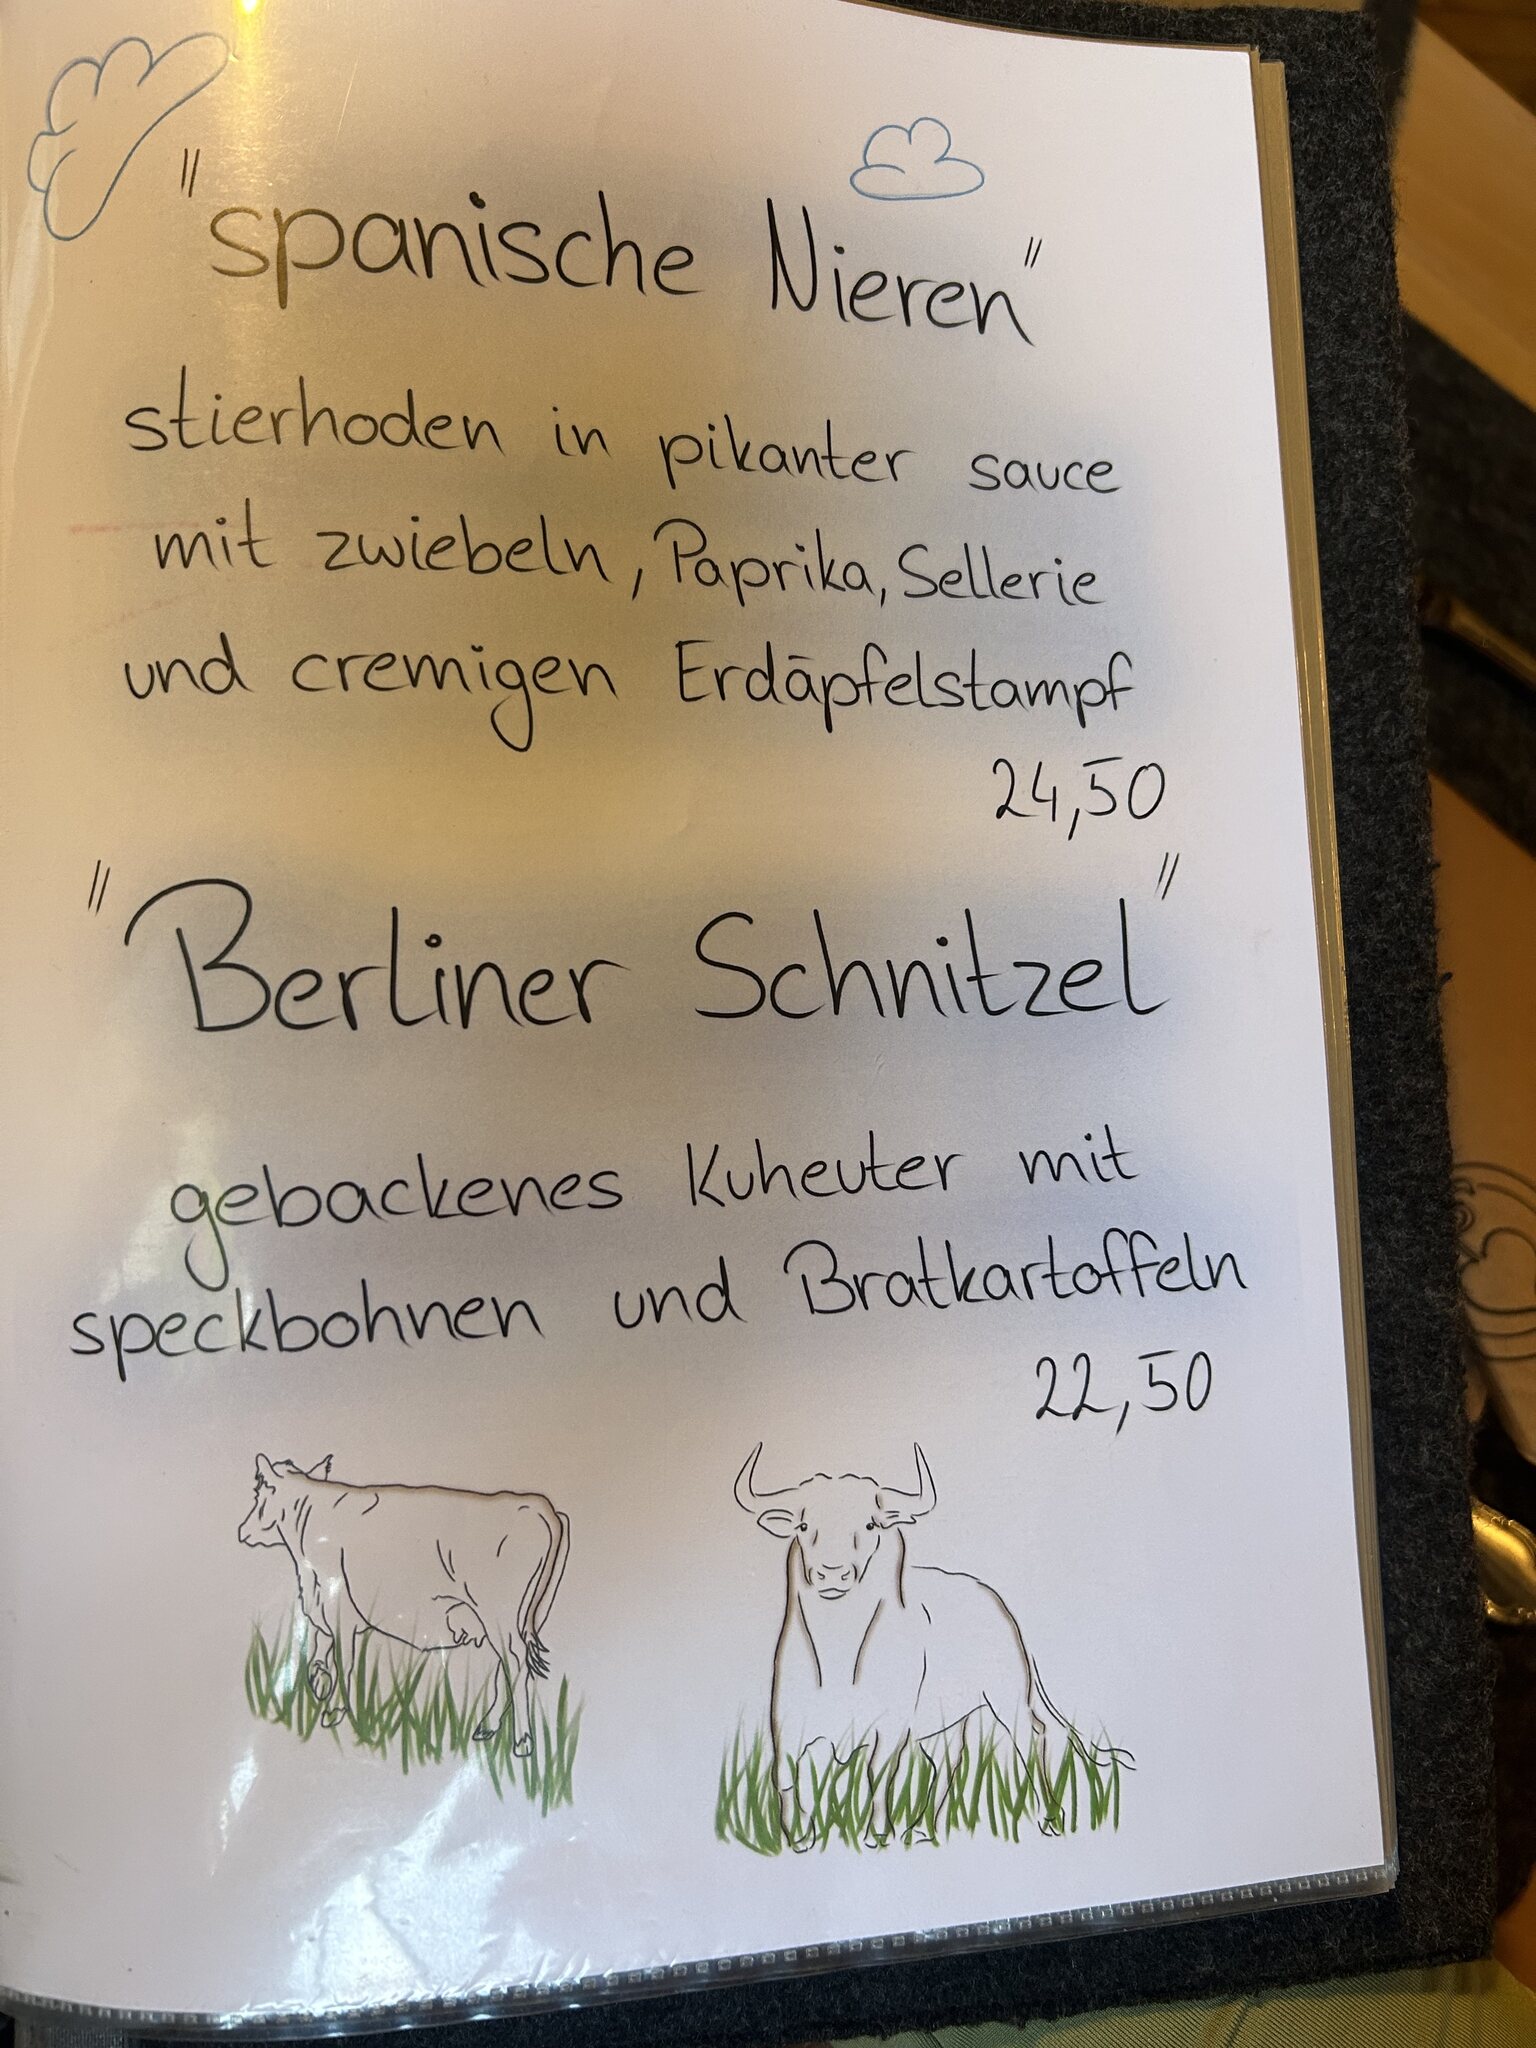 "spanische Nieren"
stierhoden in pikanter sauce
mit zwiebeln, Paprika, Sellerie
und cremigen Erdäpfelstampf
24,50
"Berliner Schnitzel"
gebackenes Kuheuter mit
speckbohnen und Bratkartoffeln
22,50